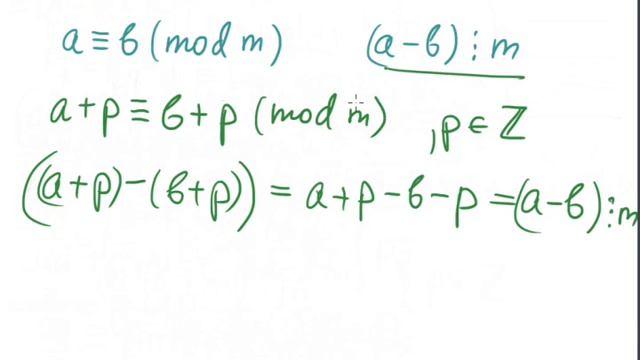 a ≡ b (mod m) (a - b) ⋮ m
a + p ≡ b + p (mod m) , p ∈ ℤ
((a + p) - (b + p)) = a + p - b - p = (a - b) ⋮ m